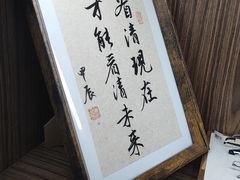 看清现在
才能看清未来
甲辰